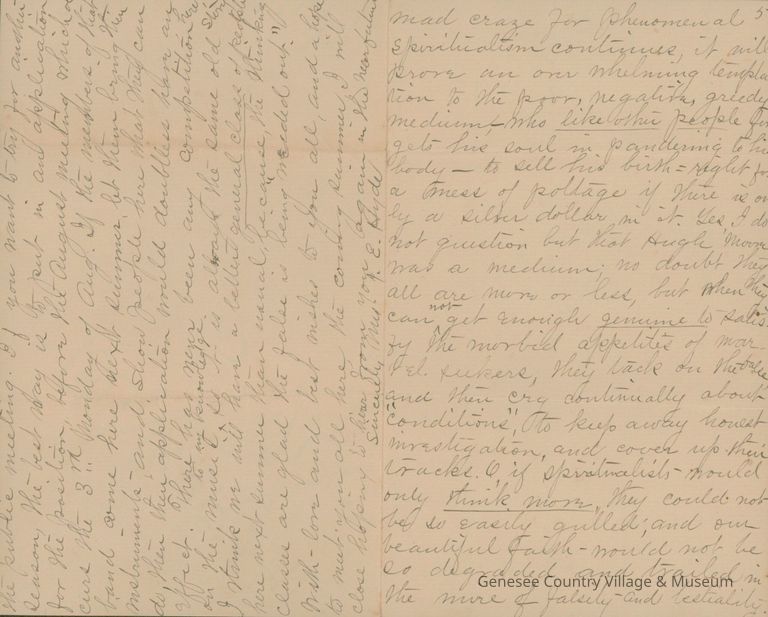 mad craze for phenomenal 5
spiritualism continues, it will
prove an over whelming tempta
tion to the poor, negative, greedy
medium, who like other people for
gets his soul in pandering to his
body — to sell his birth-right for
a mess of pottage if there is on
ly a silver dollar in it. Yes, I do
not question but that Hugh Moore
was a medium; no doubt they
all are more or less, but when they
can not get enough genuine to satis
fy the morbid appetites of mar
vel seekers, they tack on the false
and then cry continually about
"conditions", to keep away honest
investigation, and cover up their
tracks. O, if spiritualists would
only think more, they could not
be so easily gulled, and our
beautiful faith would not be
so degraded and trailed in
the mire of falsity and bestiality.
the public meeting. If you want to try for another
season, the best way is to put in an application
for the position, before the August meeting which oc
curs the 3rd Monday of Aug. If the members of the
band come here next summer, let them bring their
instruments and show people here what they can
do, then their application would doubtless have an
effect. There has never been any competition here
to my knowledge
on the music so it is always the same old story
I think we will have a better general class of people
here next summer than usual because the thinking
classes are glad the false is being "weeded out."
With love and best wishes to you all, and a hope
to meet you all here the coming summer, I will
close hoping to hear from you again in the near future
Sincerely Mrs. E Hyde
Genesee Country Village & Museum